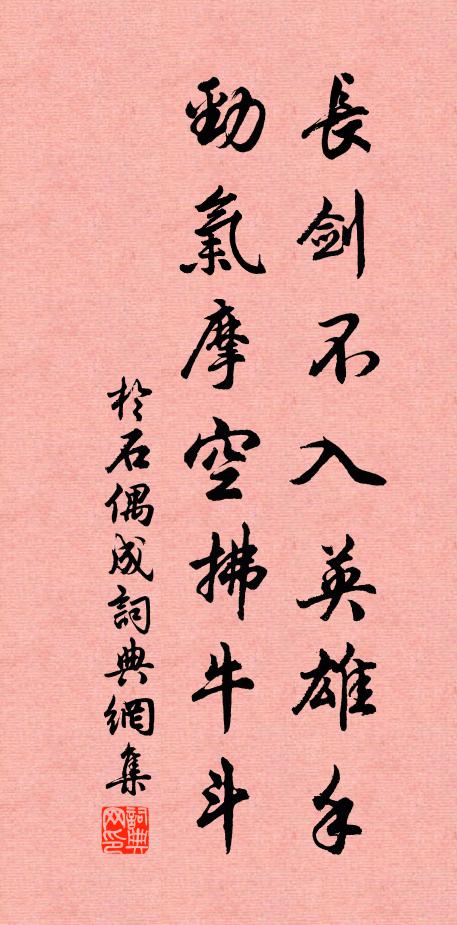 長劍不入英雄手
勁氣摩空拂牛斗
於石偶成詞典網集
詞典
网印